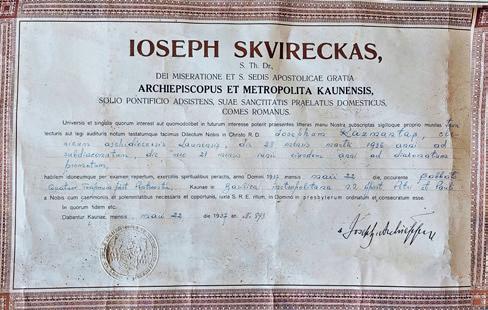 IOSEPH SKVIRECKAS,
S. Th. Dr.,
DEI MISERATIONE ET S. SEDIS APOSTOLICAE GRATIA
ARCHIEPISCOPUS ET METROPOLITA KAUNENSIS,
SOLIO PONTIFICIO ADSISTENS, SUAE SANCTITATIS PRAELATUS DOMESTICUS,
COMES ROMANUS.
Universis et singulis quorum interest aut quomodolibet in futurum interesse poterit praesentes litteras manu Nostra subscriptas sigilloque proprio munitas
lecturis aut legi audituris notum testatumque facimus Dilectum Nobis in Christo R. D. Josephum
archidioecesis Kaunensis, die 28 mensis martii 1936 anni ad
subdiaconatum, die 21 mensis ejusdem anni ad diaconatum
promotum,
habitum idoneumque per examen repertum, exercitiis spiritualibus peractis, anno Domini 1937 mensis maii 22 die, occurente sabbato
Quatuor Temporum post Kaunae in Basilica metropolitana Petri et Pauli
a Nobis cum caeremoniis et solemnitatibus necessariis et opportunis, iuxta S. R. E. ritum, in Domino in presbyterum ordinatum et consecratum esse.
In quorum fidem etc.
Dabantur Kaunae, mensis maii 22 die 1937